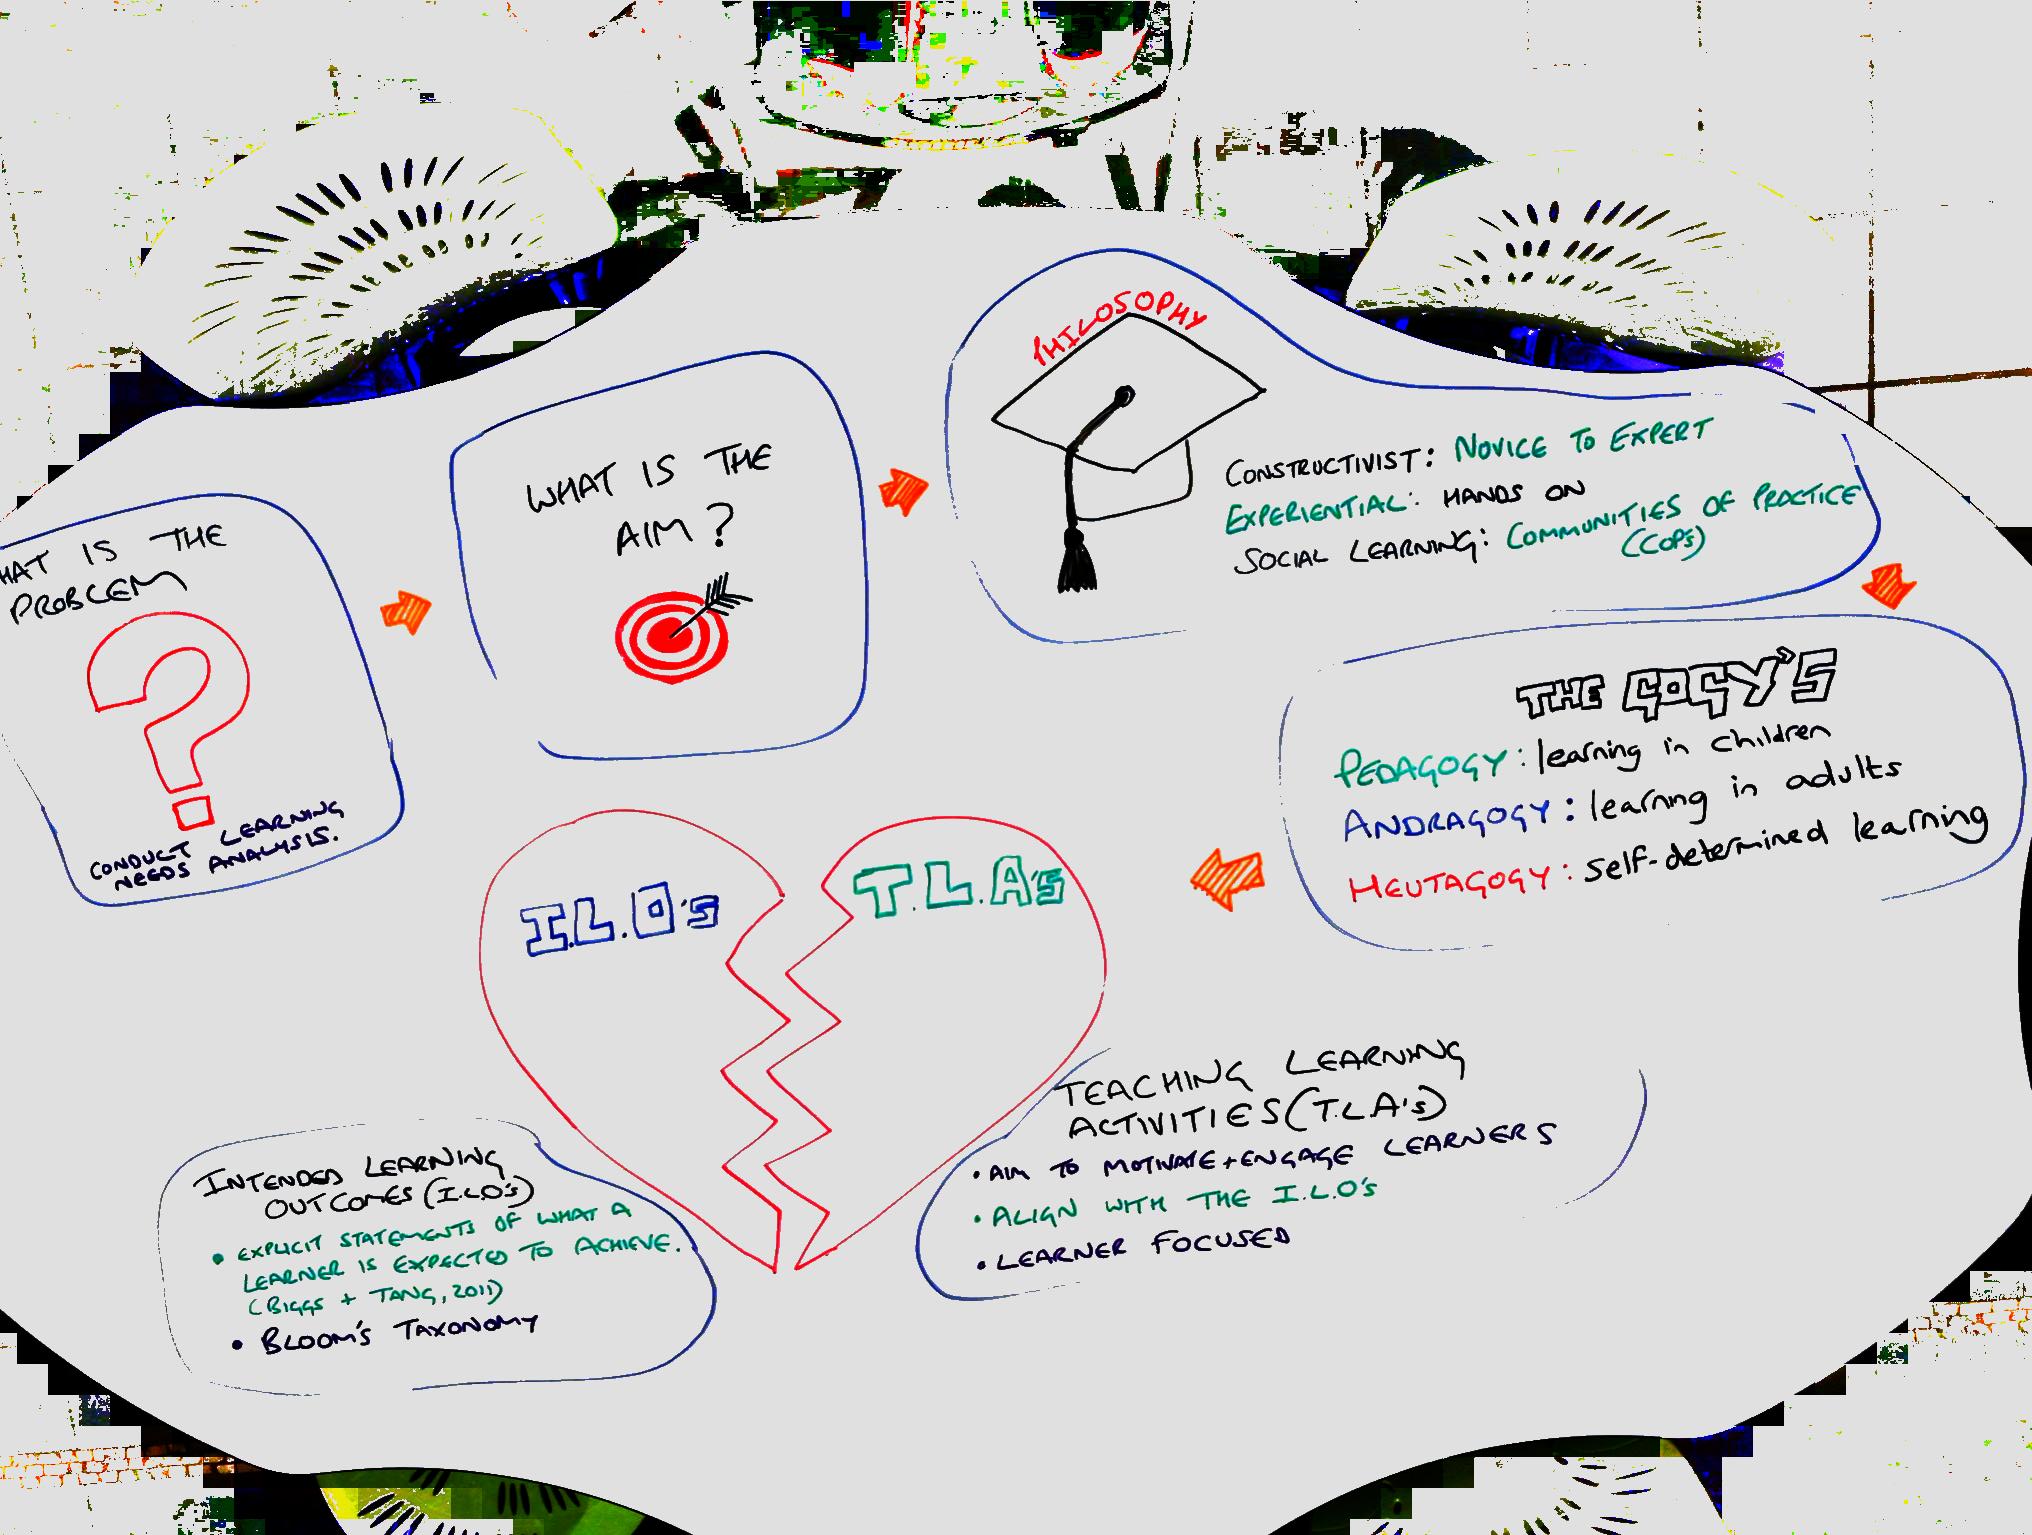 HAT IS THE
PROBLEM
CONDUCT LEARNING
NEEDS ANALYSIS.
WHAT IS THE
AIM?
PHILOSOPHY
CONSTRUCTIVIST: NOVICE TO EXPERT
EXPERIENTIAL: HANDS ON
SOCIAL LEARNING: COMMUNITIES OF PRACTICE
(COP's)
THE GOGY'S
PEDAGOGY: learning in children
ANDRAGOGY: learning in adults
HEUTAGOGY: self-determined learning
I.L.O's
T.L.A's
INTENDED LEARNING
OUTCOMES (I.L.O's)
• EXPLICIT STATEMENTS OF WHAT A
LEARNER IS EXPECTED TO ACHIEVE.
(BIGGS + TANG, 2011)
• BLOOM'S TAXONOMY
TEACHING LEARNING
ACTIVITIES (T.L.A's)
• AIM TO MOTIVATE + ENGAGE LEARNERS
• ALIGN WITH THE I.L.O's
• LEARNER FOCUSED